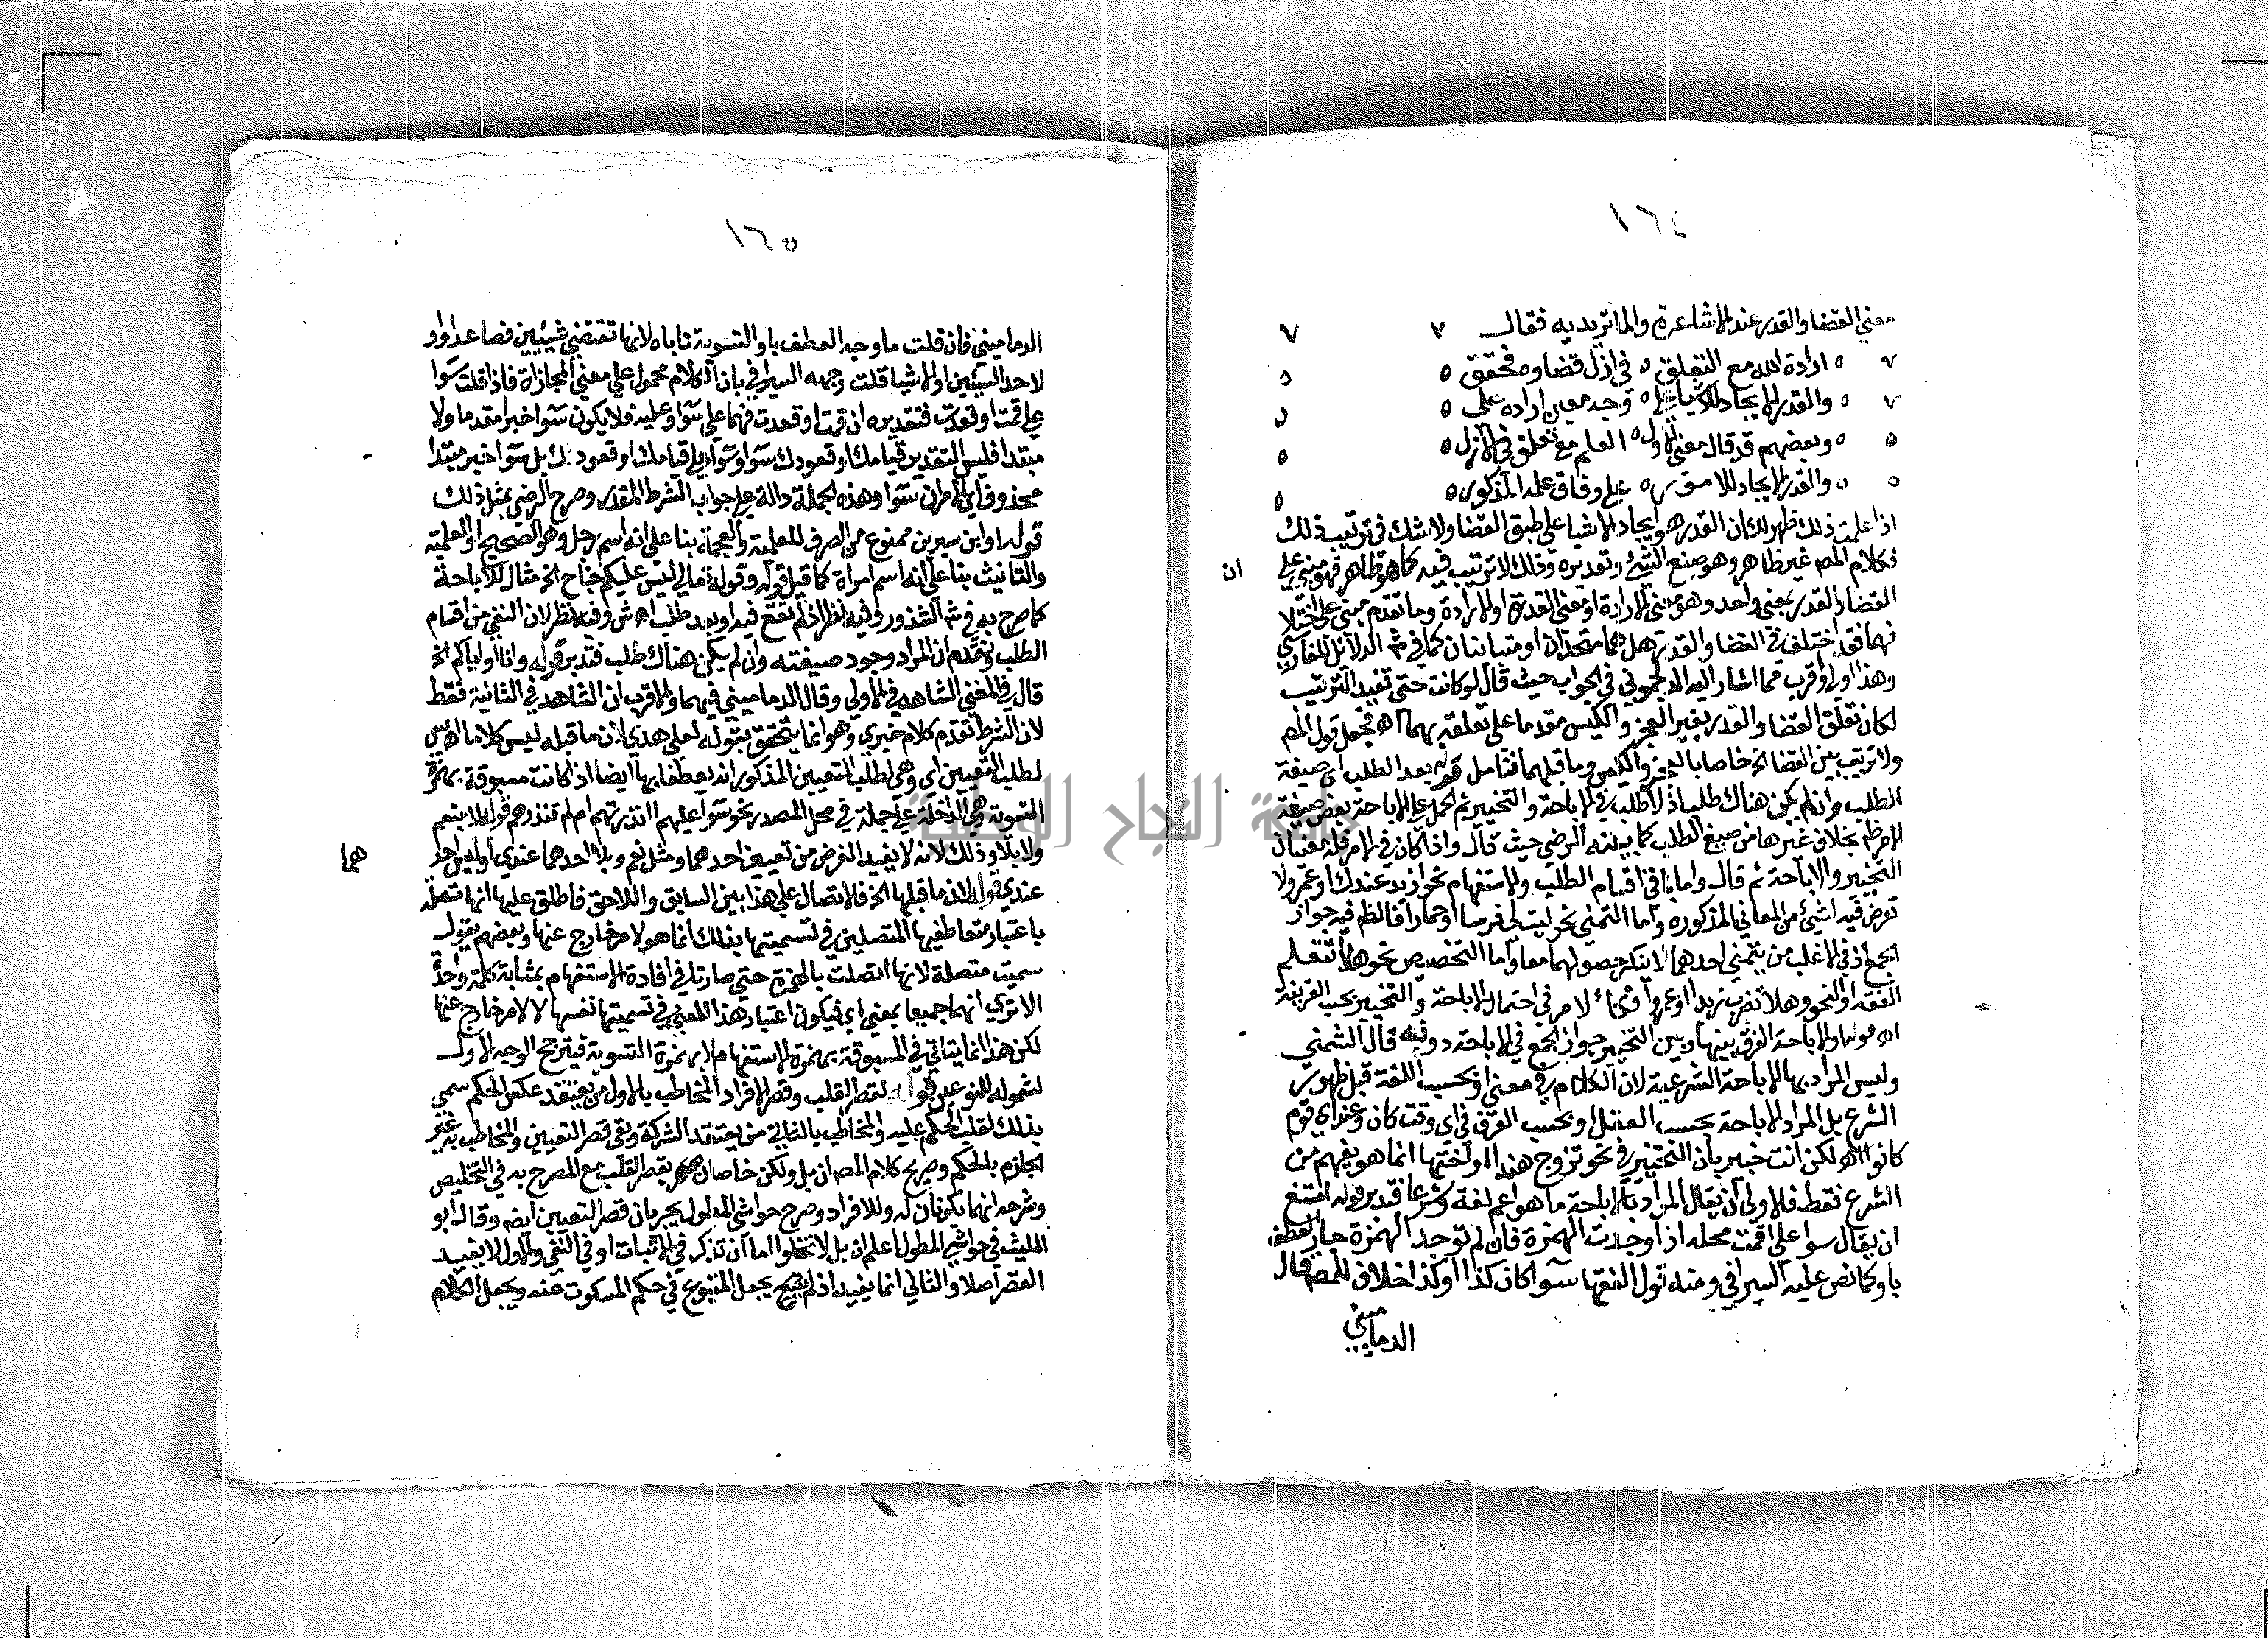 ١٦٤
معني القضا والقدر عند الاشاعرة والماتريديه فقال
ارادة الله مع التعلق ٥ في ازل قضاوه محقق
والقدر الايجاد للاشيا علي ٥ وجه معين اراده علي
وبعضهم قد قال معني الاول ٥ العلم مع تعلق في الازل
والقدر الايجاد للامور ٥ علي وفاق علمه المذكور
اذا علمت ذلك ظهر لك ان القدر هو ايجاد الاشيا علي طبق القضا ولا شك في ترتيب ذلك
فكلام المص غير ظاهر وهو صنع الشئ وتقديره وذلك لا ترتيب فيه كما هو ظاهر فهو مبني علي
ان
القضا والقدر بمعني واحد وهو معني الارادة او معني القدرة او الارادة وما تقدم مبني علي اختلا
فهما فقد اختلف في القضا والقدر هل هما متحدان او متباينان كما في شرح الدلائل للفاسي
وهذا اولي واقرب مما اشار اليه الدلجموني في الجواب حيث قال لو كانت حتي تفيد الترتيب
لكان تعلق القضا والقدر بغير العجز والكيس مقدما علي تعلقه بهما اه فجعل قول المص
ولا ترتيب بين القضا الخ خاصا بالعجز والكيس وما قبلهما فتامل قوله بعد الطلب اي صيغة
الطلب وان لم يكن هناك طلب اذ لا طلب في الاباحة والتخيير ثم الحمل علي الاباحة بعض صيغة
الامر ظم بخلاف غيرها من صيغ الطلب كما بينه الرضي حيث قال واذا كان في الامر فله معنيان
التخيير والاباحة ثم قال واما باقي اقسام الطلب والاستفهام نحو ازيد عندك او عمرو لا
تعرض فيه لشئ من المعاني المذكوره واما التمني نحو ليت لي فرسا او حمارا فالظم فيه جواز
الجمع اذ في الاغلب من يتمني احدهما لا ينكر حصولهما معا واما التحضيض نحو هلا تتعلم
الفقه او النحو وهلا تضرب زيدا او عمروا فكالامر في احتمال الاباحة والتخيير بحسب القرينة
اه قوله والاباحة الفرق بينها وبين التخيير جواز الجمع في الاباحة دونه قال الشمني
وليس المراد بها الاباحة الشرعية لان الكلام في معني او بحسب اللغة قبل ظهور
الشرع بل المراد الاباحة بحسب العقل او بحسب العرف في اي وقت كان وعند اي قوم
كانوا اه لكن انت خبير بان التخيير في نحو تزوج هندا او اختها انما هو يفهم من
الشرع فقط فالاولي ان يقال المراد بالاباحة ما هو اعم لغة وشرعا فتدبر قوله امتنع
ان يقال سوا علي اقمت محله اذا وجدت الهمزة فان لم توجد الهمزة جاز العطف
باو كما نص عليه السيرافي ومنه قول الفقها سوا كان كذا او كذا خلاف للمص قال
الدماميني
١٦٥
الدماميني فان قلت ما وجه العطف باو والتسوية تاباه لانها تقتضي شيئين فصاعدا واو
لاحد الشيئين او الاشيا قلت وجهه السيرافي بان الكلام محمول علي معني المجازاة فاذا قلت سوا
علي قمت او قعدت فتقديره ان قمت او قعدت فهما علي سوا وعليه فلا يكون سوا خبرا مقدما ولا
مبتدا فليس التقدير قيامك او قعودك سوا وسوا علي قيامك او قعودك بل سوا خبر مبتدا
محذوف اي الامران سوا وهذه الجملة دالة علي جواب الشرط المقدر وصرح الرضي بمثل ذلك
قوله او ابن سيرين ممنوع من الصرف للعلمية والعجمة بنا علي انه اسم رجل وهو الصحيح او العلمية
والتانيث بنا علي انه اسم امراة كما قيل قوله وقوله تعالي ليس عليكم جناح الخ مثال للاباحة
كما صرح به في شرح الشذور وفيه نظر اذ لم تقع فيه او بعد طلب اه ش وفيه نظر لان النفي من اقسام
الطلب وتقدم ان المراد وجود صيغته وان لم يكن هناك طلب فتدبر قوله وانا او اياكم الخ
قال في المغني الشاهد في الاولي وقال الدماميني فيهما والاقرب ان الشاهد في الثانية فقط
لان الشرط تقدم كلام خبري وهو انما يتحقق بقوله لعلي هدي لان ما قبله ليس كلاما اه يس
لطلب التعيين اي وهي لطلب التعيين المذكور انه يعطف بها ايضا اذا كانت مسبوقة بهمزة
التسوية وهي الداخلة علي جملة في محل المصدر نحو سوا عليهم اانذرتهم ام لم تنذرهم قوله لا بنعم
ولا بلا وذلك لانه لا يفيد الغرض من تعيين احدهما ومثل نعم وبلا احدهما عندي او ليس احد
هما
عندي قوله لان ما قبلها الخ فالاتصال علي هذا بين السابق واللاحق فاطلق عليها انها متصلة
باعتبار متعاطفيها المتصلين في تسميتها بذلك انما هو لامر خارج عنها وبعضهم يقول
سميت متصلة لانها اتصلت بالهمزة حتي صارتا في افادة الاستفهام بمثابة كلمة واحدة
الا تري انهما جميعا بمعني اي فيكون اعتبار هذا المعني في تسميتها نفسها لا لامر خارج عنها
لكن هذا انما يتاتي في المسبوقة بهمزة الاستفهام لا بهمزة التسوية فيترجح الوجه الاول
لشموله للنوعين قوله لقصر القلب وقصر الافراد المخاطب بالاول من يعتقد عكس الحكم سمي
بذلك لقلب الحكم عليه والمخاطب بالثاني من يعتقد الشركة وبقي قصر التعيين والمخاطب به غير
الجازم بالحكم وصريح كلام المص ان بل ولكن خاصان بقصر القلب مع المصرح به في التخليص
وشرحه انهما يكونان له وللافراد وصرح حواشي المطول يجريان قصر التعيين ايضه وقال ابو
الليث في حواشي المطول اعلم ان بل لا تخلوا اما ان تذكر في الاثبات او في النفي والاول لا يفيد
القصر اصلا والثاني انما يفيد اذا لم يجعل المتبوع في حكم المسكوت عنه ويجعل الكلام
جامعة النجاح الوطنية